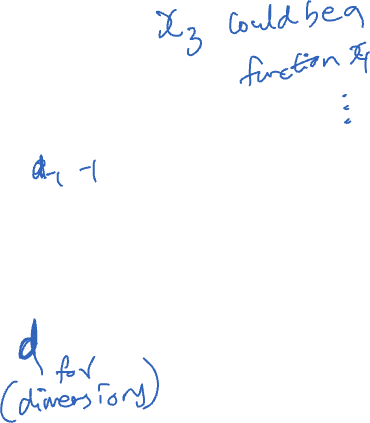 x₃ could be a
function x₁
⋮
d₋, -1
d for
(dimensions)